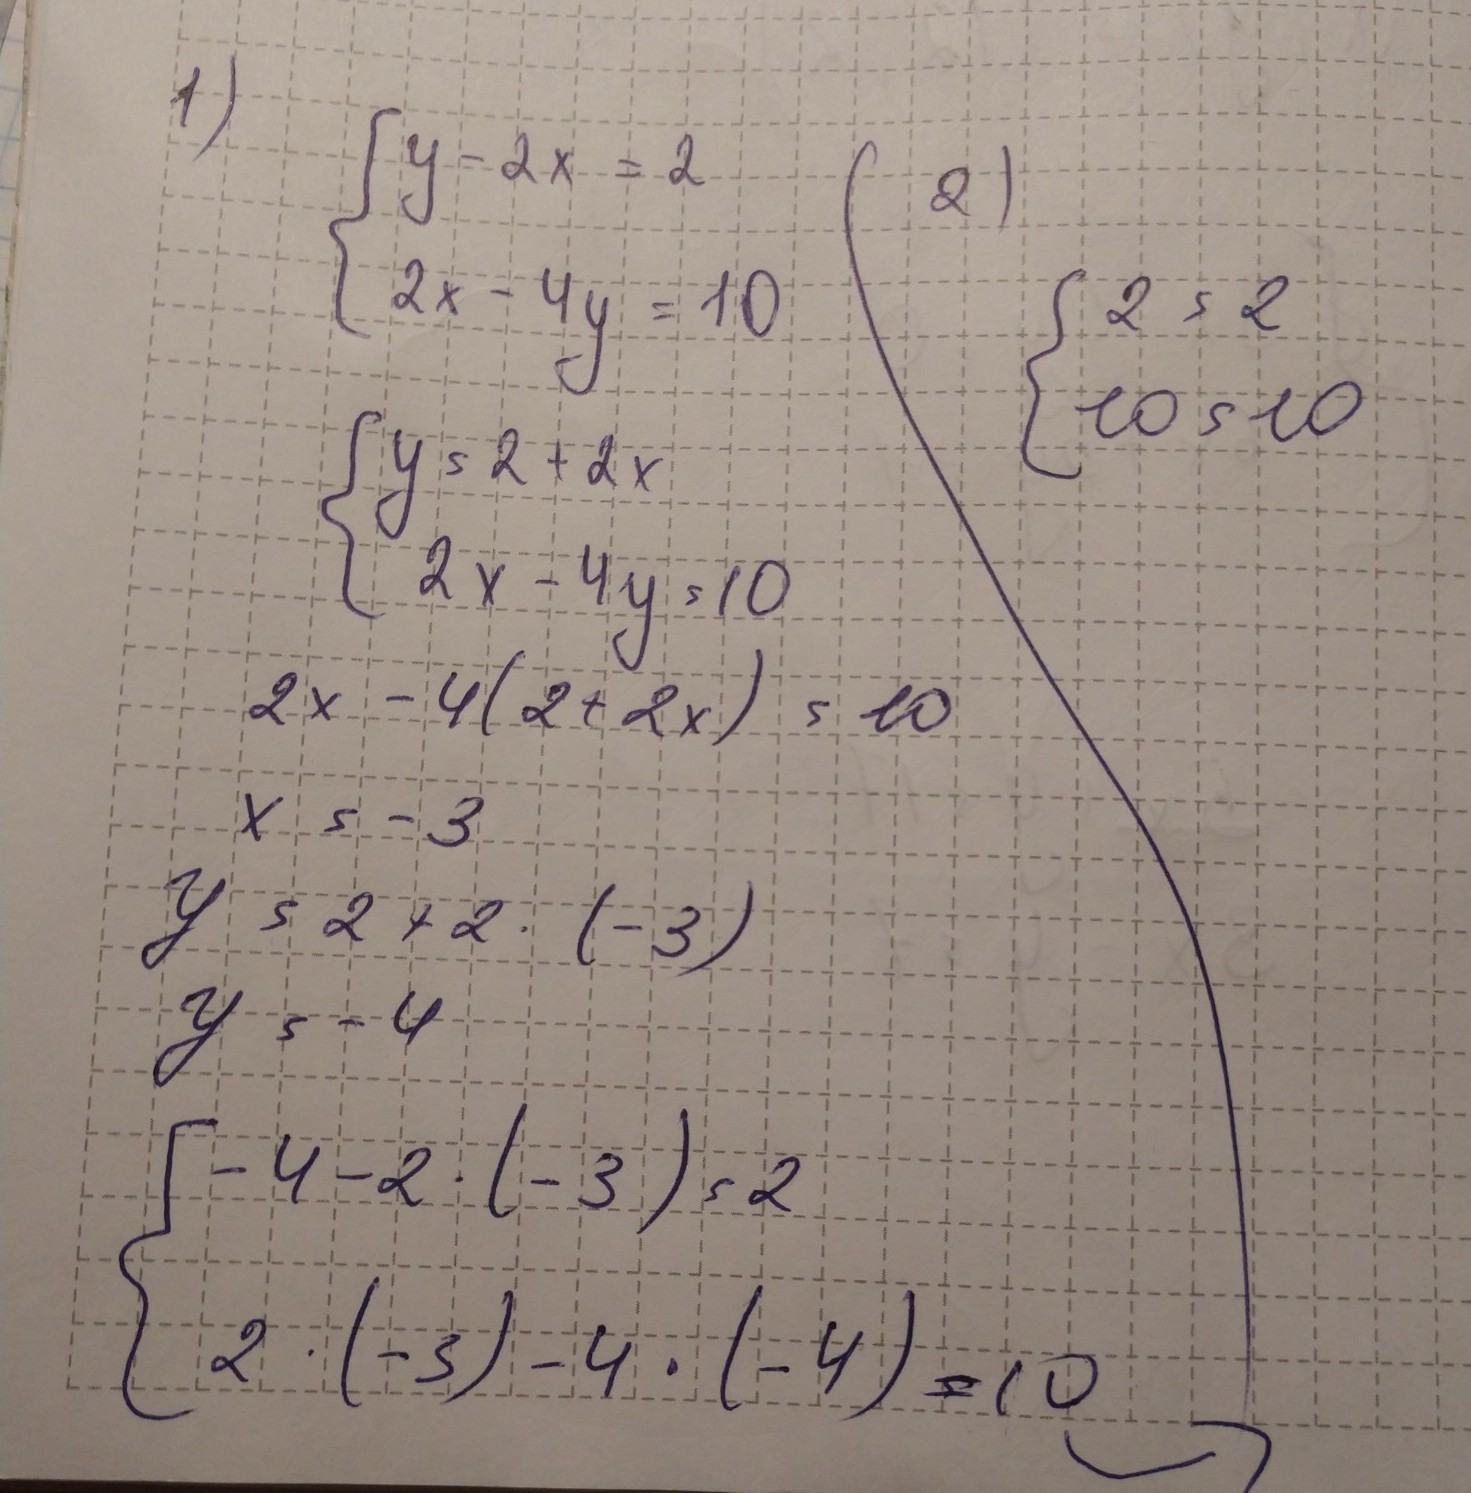 1)
y - 2x = 2
2x - 4y = 10
y = 2 + 2x
2x - 4y = 10
2x - 4(2 + 2x) = 10
x = -3
y = 2 + 2 · (-3)
y = -4
-4 - 2 · (-3) = 2
2 · (-3) - 4 · (-4) = 10
2)
2 = 2
10 = 10